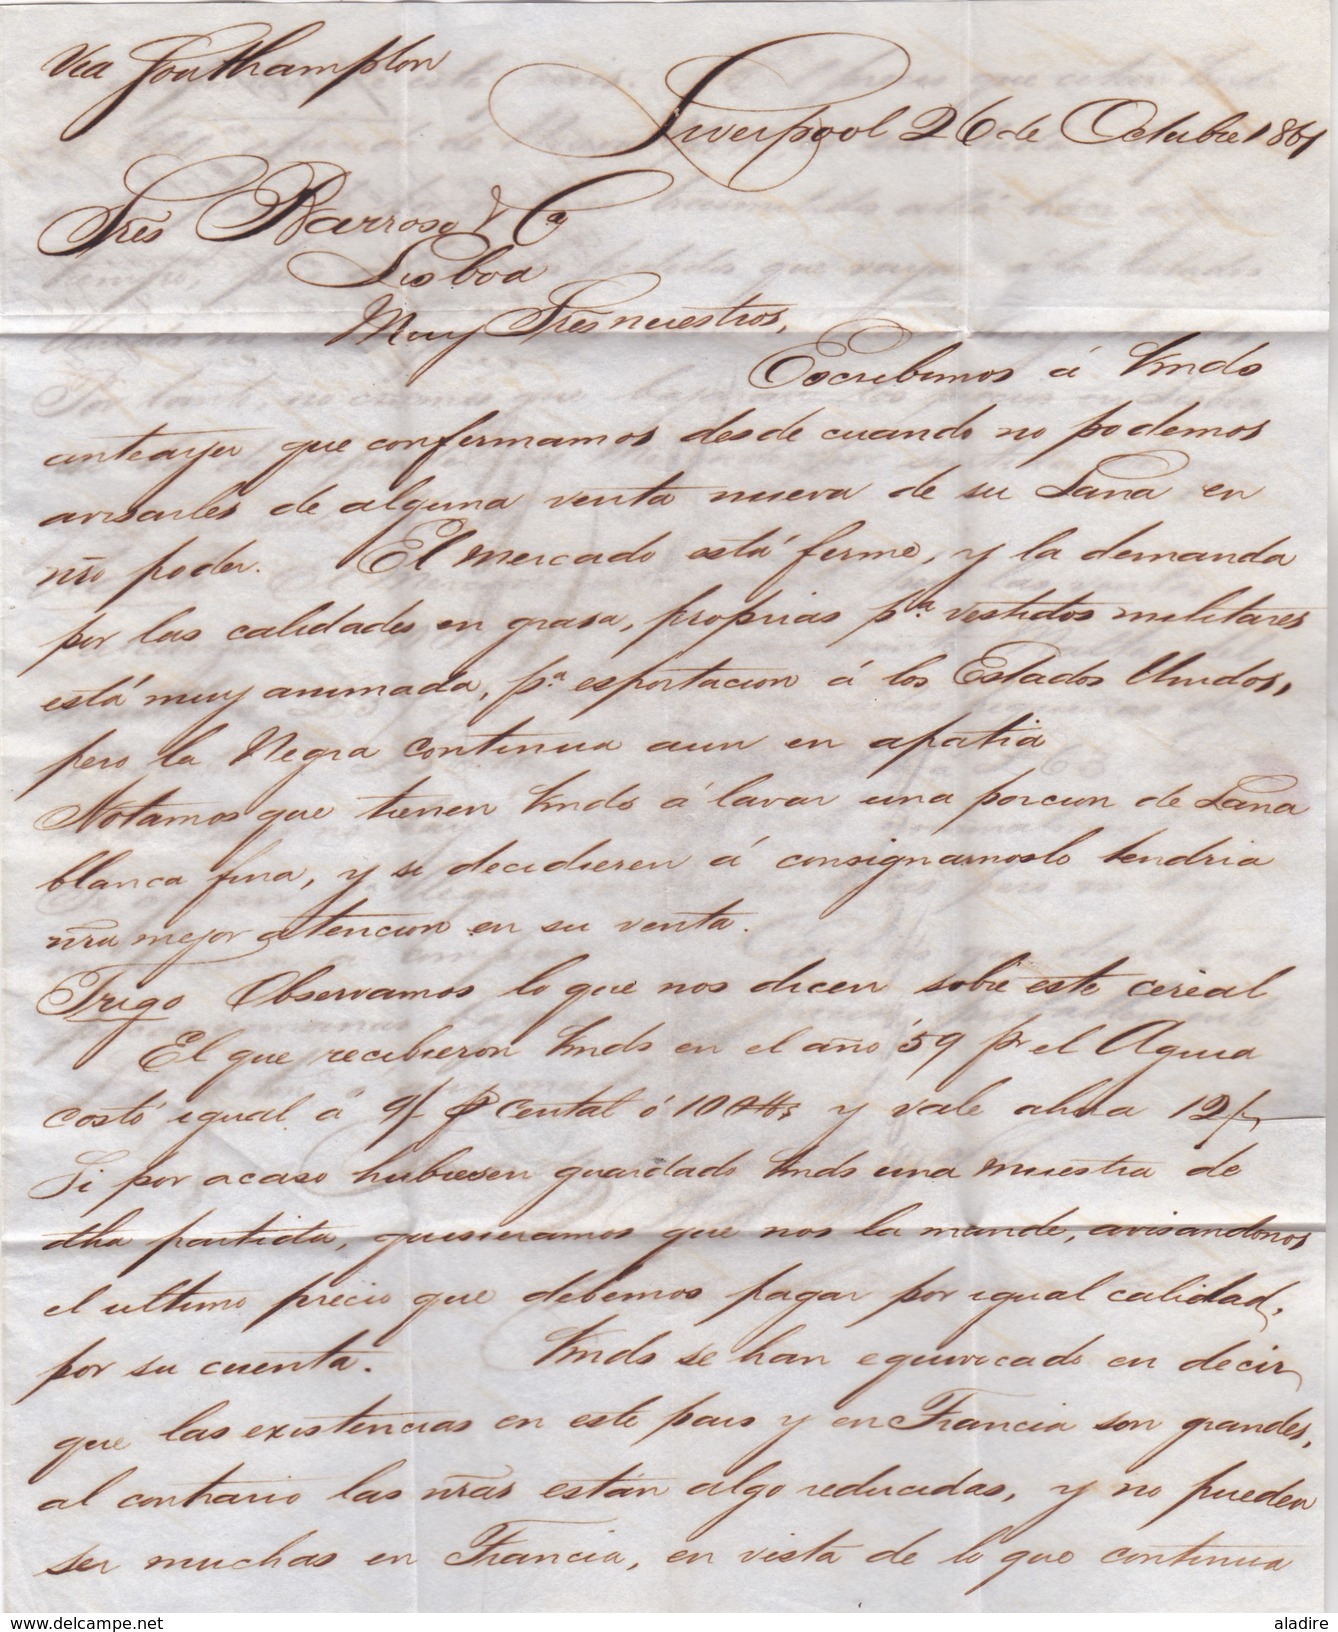 Via Southampton
Liverpool 26 de Octubre 1861
Sres Barroso & Ca
Lisboa
Muy Sres nuestros,
Escribimos á Vmds
anteayer que confirmamos desde cuando no podemos
avisarles de alguna venta nueva de su Lana en
nro poder. El mercado está firme, y la demanda
por las calidades en grasa, proprias pa. vestidos militares
está muy animada, pa esportacion á los Estados Unidos,
pero la Negra continua aun en apatia
Notamos que tienen Vmds á lavar una porcion de Lana
blanca fina, y si decidieren á consignarnoslo tendria
nra mejor atencion en su venta.
Trigo Observamos lo que nos dicen sobre este cereal
El que recibieron Vmds en el año '59 pr el Agua
costó igual á 9/ ⅌ Cental ó 100 lbs y vale ahora 12/
Si por acaso hubiesen guardado Vmds una muestra de
dha partida, quisieramos que nos la mande, avisandonos
el ultimo precio que debemos pagar por igual calidad,
por su cuenta. Vmds se han equivocado en decir
que las existencias en este pais y en Francia son grandes,
al contrario las nras están algo reducidas, y no pueden
ser muchas en Francia, en vista de lo que continua
www.delcampe.net
aladire